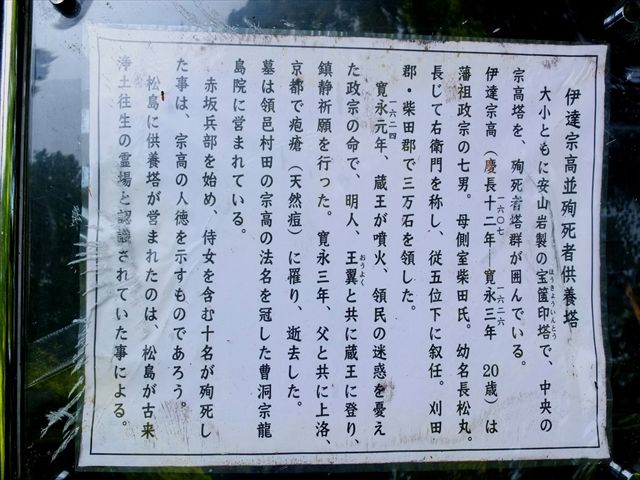 伊達宗高並殉死者供養塔
大小ともに安山岩製の宝篋印塔で、中央の
ほうきょういんとう
宗高塔を、殉死者塔群が囲んでいる。
伊達宗高(慶長十二年 寛永三年 20歳)は
一六〇七 一六二六
藩祖政宗の七男。母側室柴田氏。幼名長松丸。
長じて右衛門を称し、従五位下に叙任。刈田
郡・柴田郡で三万石を領した。
寛永元年、蔵王が噴火、領民の迷惑を憂え
一六二四
た政宗の命で、明人、王翼と共に蔵王に登り、
おうよく
鎮静祈願を行った。寛永三年、父と共に上洛、
京都で疱瘡(天然痘)に雁り、逝去した。
墓は領邑村田の宗高の法名を冠した曹洞宗龍
島院に営まれている。
赤坂兵部を始め、侍女を含む十名が殉死し
た事は、宗高の人徳を示すものであろう。
松島に供養塔が営まれたのは、松島が古来
浄土往生の霊場と認識されていた事による。